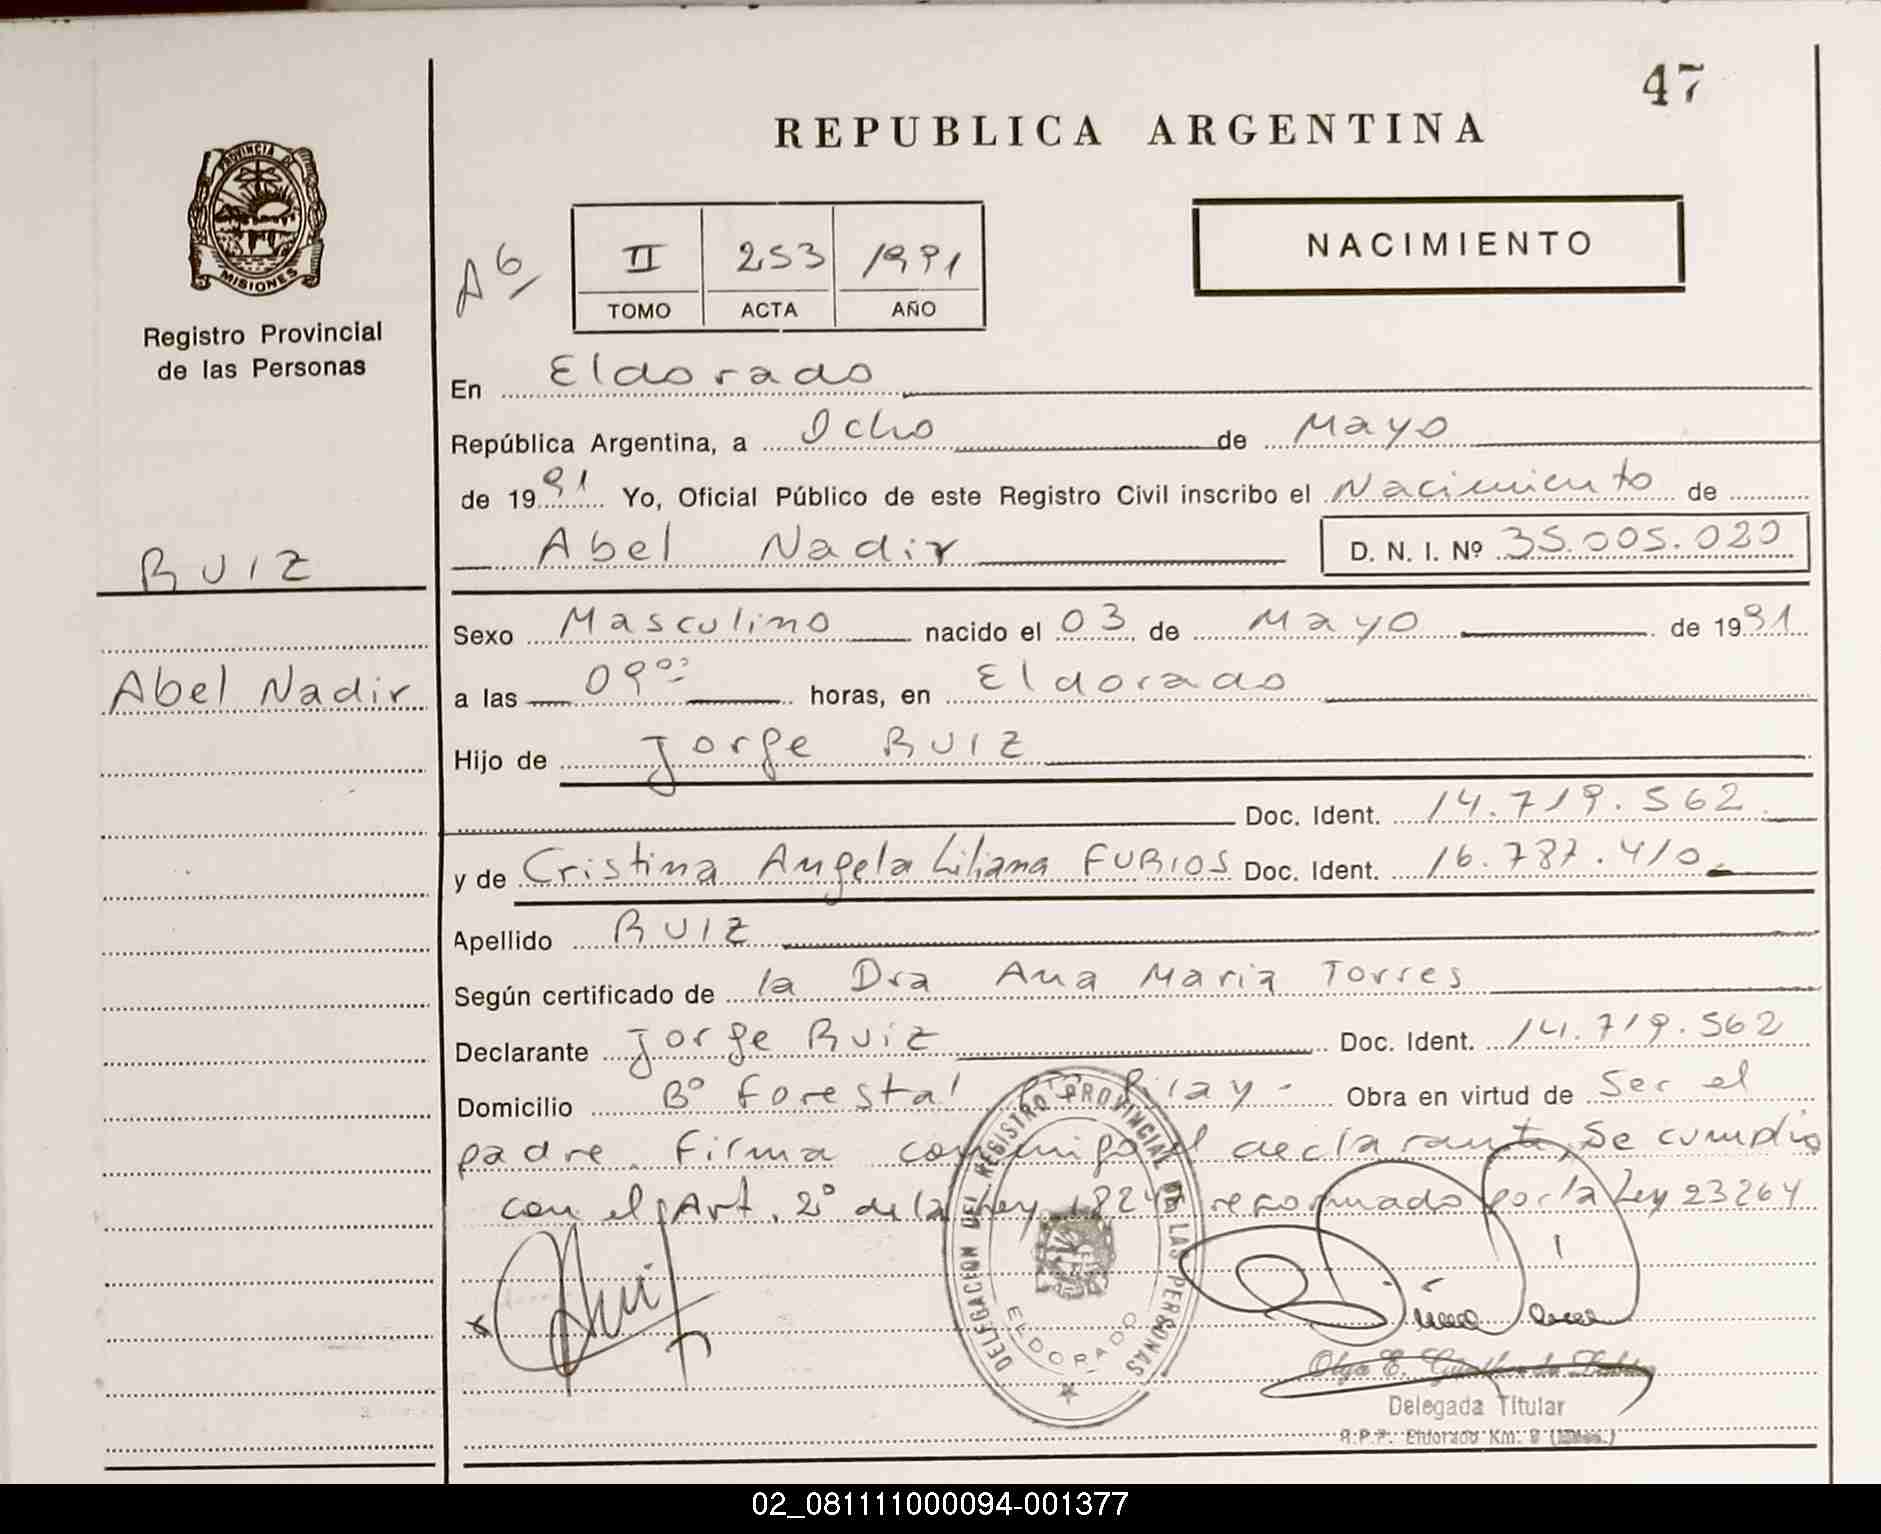 47
REPUBLICA ARGENTINA
PROVINCIA DE MISIONES
Registro Provincial
de las Personas
A6
II 253 1991
TOMO ACTA AÑO
NACIMIENTO
En Eldorado
República Argentina, a Ocho de Mayo
de 1991 Yo, Oficial Público de este Registro Civil inscribo el Nacimiento de
Abel Nadir D. N. I. Nº 35.005.020
RUIZ
Abel Nadir
Sexo Masculino nacido el 03 de Mayo de 1991
a las 09⁰⁰ horas, en Eldorado
Hijo de Jorge RUIZ
Doc. Ident. 14.719.562
y de Cristina Angela Liliana FURIOS Doc. Ident. 16.787.410
Apellido RUIZ
Según certificado de la Dra Ana Maria Torres
Declarante Jorge Ruiz Doc. Ident. 14.719.562
Domicilio Bº Forestal Obra en virtud de Ser el
padre. Firma conmigo el declarante, Se cumplio
con el Art. 2º de la Ley reformado por la Ley 23264
DELEGACION DEL REGISTRO PROVINCIAL DE LAS PERSONAS
ELDORADO
Olga E.
Delegada Titular
R.P.P. Eldorado Km. 9
02_081111000094-001377